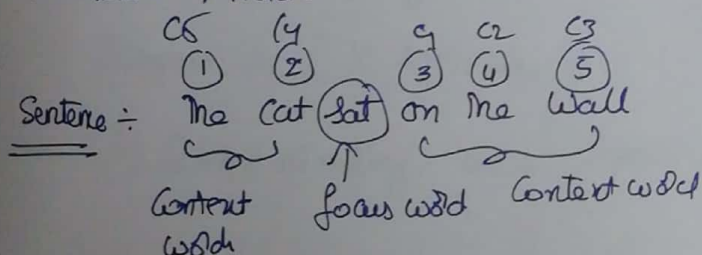 C5 C4 C1 C2 C3
1 2 3 4 5
Sentence ÷ The Cat Sat on The Wall
Context focus word Context word
word